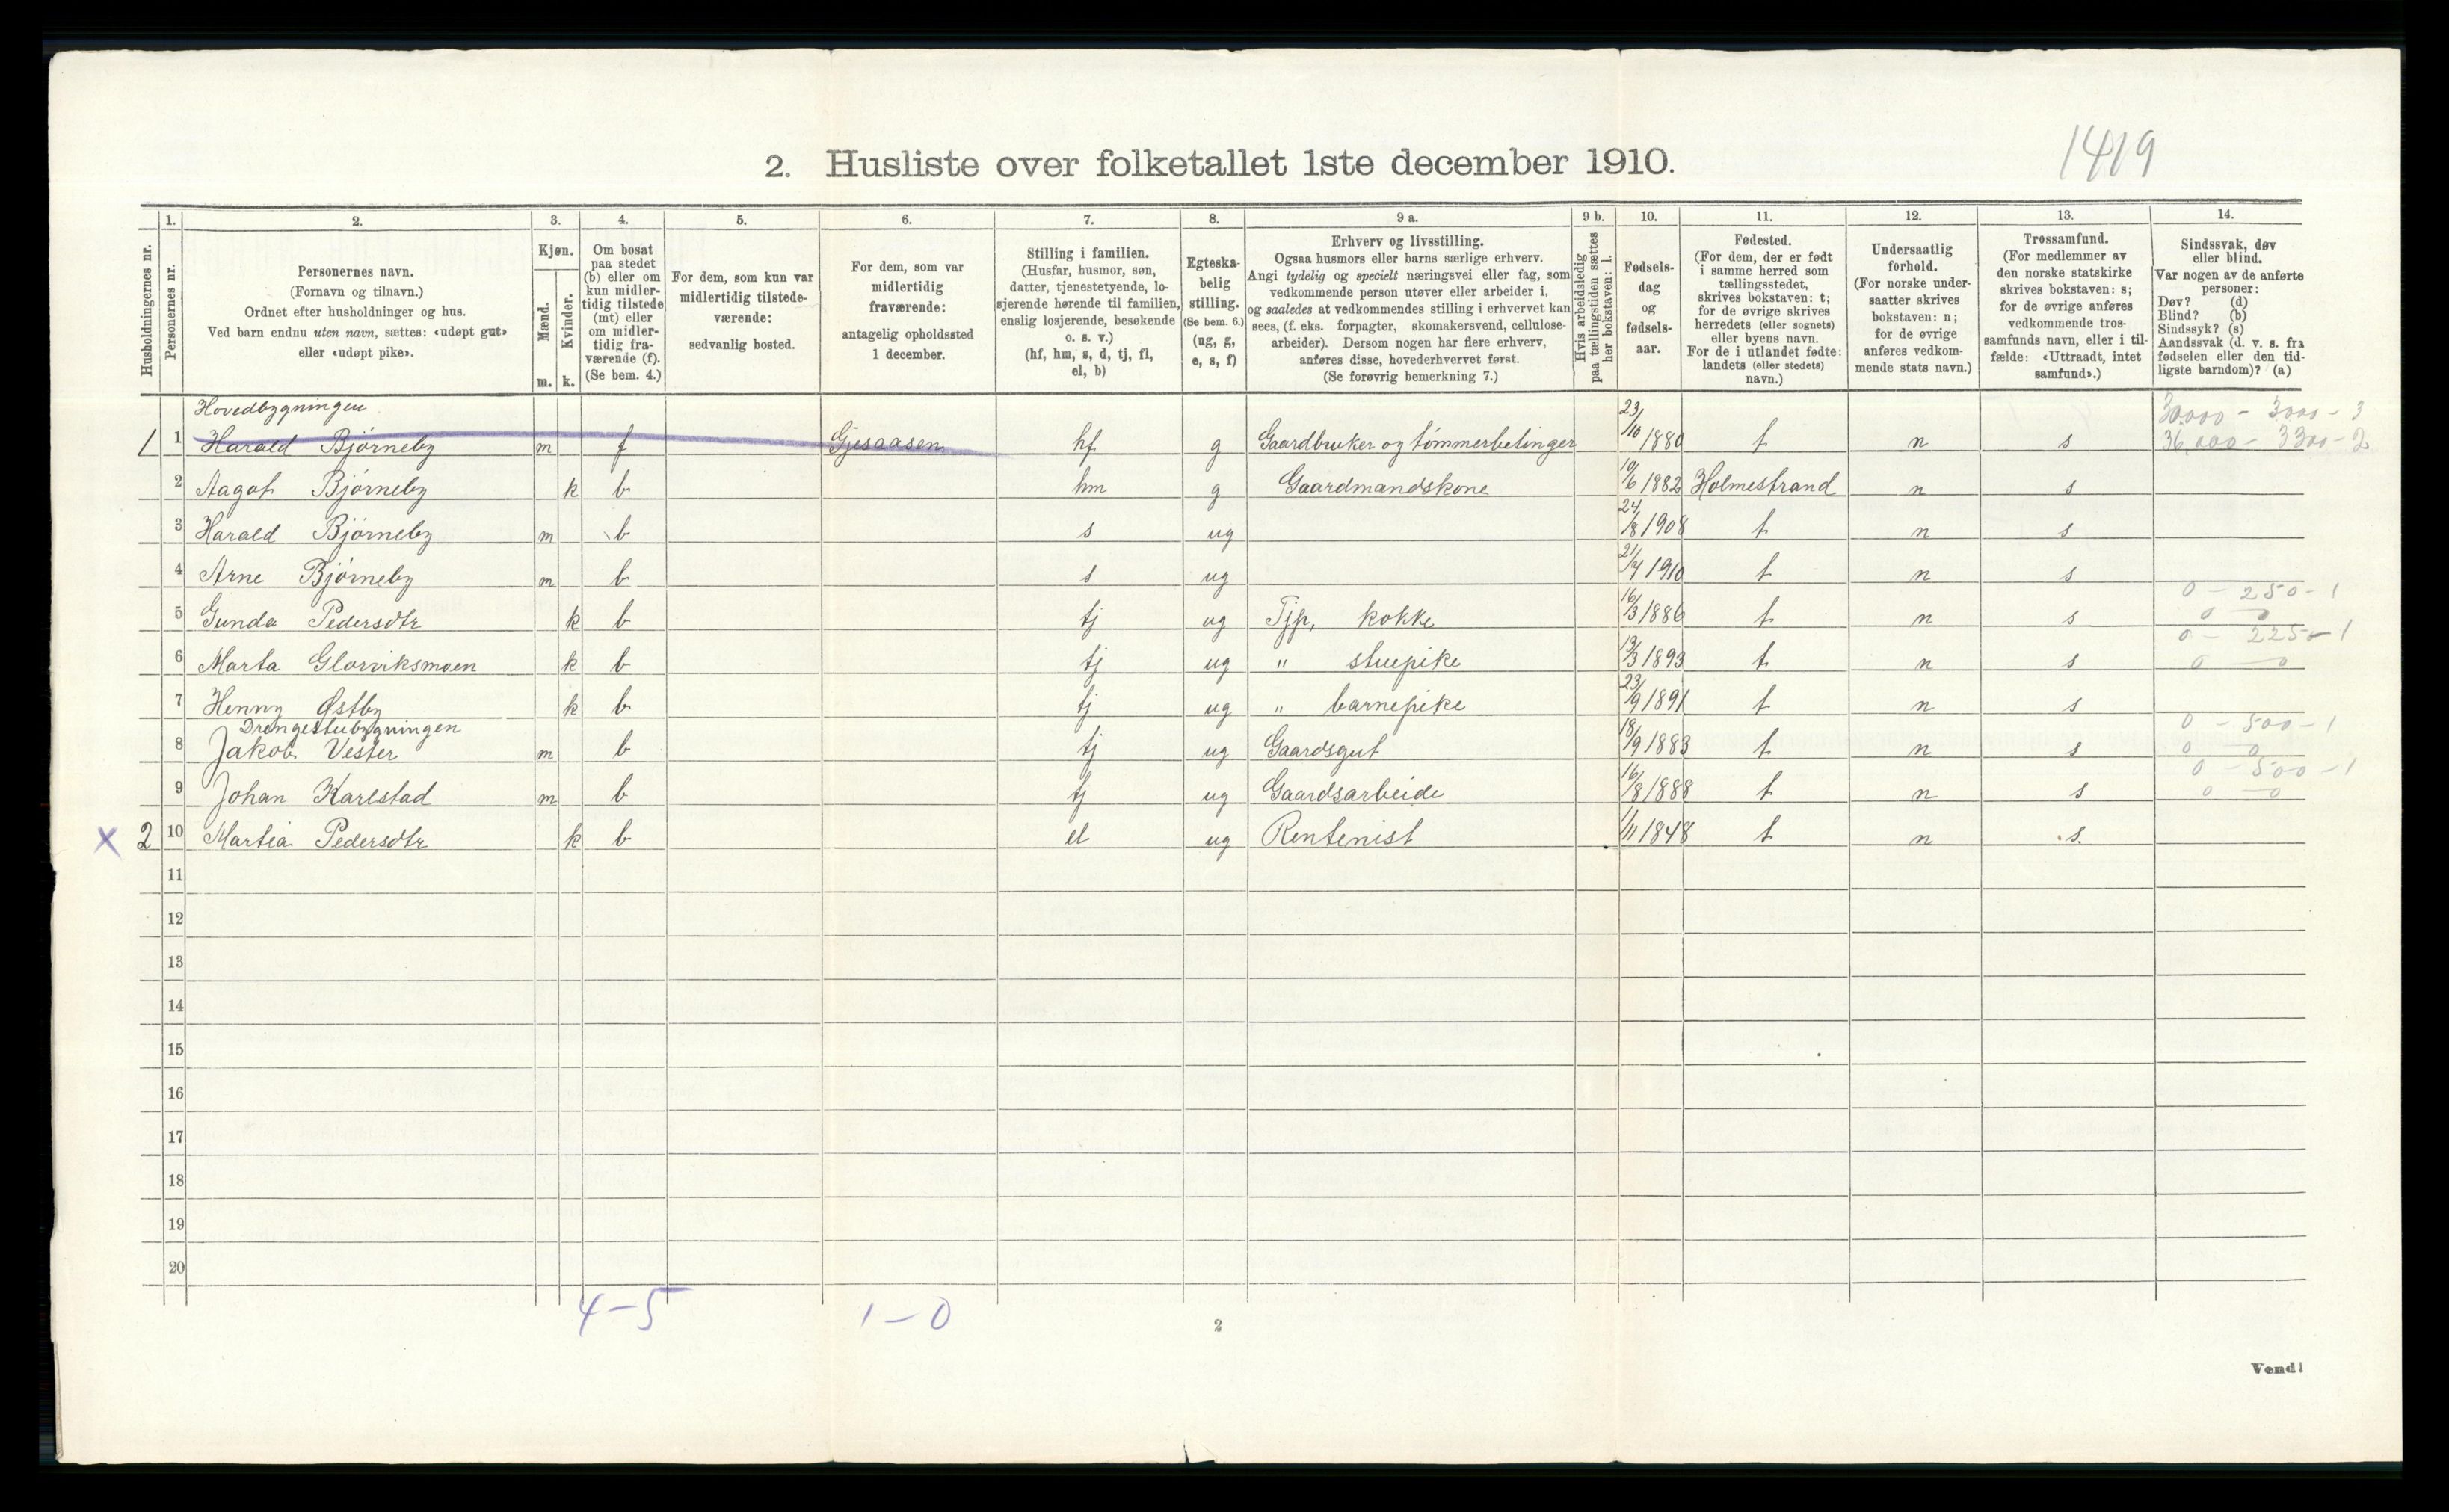 1419
2. Husliste over folketallet 1ste december 1910.
1. 2. 3. 4. 5. 6. 7. 8. 9 a. 9 b. 10. 11. 12. 13. 14.
Husholdningernes nr.
Personernes nr.
Personernes navn.
(Fornavn og tilnavn.)
Ordnet efter husholdninger og hus.
Ved barn endnu uten navn, sættes: «udøpt gut»
eller «udøpt pike».
Kjøn.
Mænd.
Kvinder.
m. k.
Om bosat
paa stedet
(b) eller om
kun midler-
tidig tilstede
(mt) eller
om midler-
tidig fra-
værende (f).
(Se bem. 4.)
For dem, som kun var
midlertidig tilstede-
værende:
sedvanlig bosted.
For dem, som var
midlertidig
fraværende:
antagelig opholdssted
1 december.
Stilling i familien.
(Husfar, husmor, søn,
datter, tjenestetyende, lo-
sjerende hørende til familien,
enslig losjerende, besøkende
o. s. v.)
(hf, hm, s, d, tj, fl,
el, b)
Egteska-
belig
stilling.
(Se bem. 6.)
(ug, g,
e, s, f)
Erhverv og livsstilling.
Ogsaa husmors eller barns særlige erhverv.
Angi tydelig og specielt næringsvei eller fag, som
vedkommende person utøver eller arbeider i,
og saaledes at vedkommendes stilling i erhvervet kan
sees, (f. eks. forpagter, skomakersvend, cellulose-
arbeider). Dersom nogen har flere erhverv,
anføres disse, hovederhvervet først.
(Se forøvrig bemerkning 7.)
Hvis arbeidsledig
paa tællingstiden sættes
her bokstaven: l.
Fødsels-
dag
og
fødsels-
aar.
Fødested.
(For dem, der er født
i samme herred som
tællingsstedet,
skrives bokstaven: t;
for de øvrige skrives
herredets (eller sognets)
eller byens navn.
For de i utlandet fødte:
landets (eller stedets)
navn.)
Undersaatlig
forhold.
(For norske under-
saatter skrives
bokstaven: n;
for de øvrige
anføres vedkom-
mende stats navn.)
Trossamfund.
(For medlemmer av
den norske statskirke
skrives bokstaven: s;
for de øvrige anføres
vedkommende tros-
samfunds navn, eller i til-
fælde: «Uttraadt, intet
samfund».)
Sindssvak, døv
eller blind.
Var nogen av de anførte
personer:
Døv? (d)
Blind? (b)
Sindssyk? (s)
Aandssvak (d. v. s. fra
fødselen eller den tid-
ligste barndom)? (a)
Hovedbygningen
30.000 - 3000 - 3
1 1 Harald Bjørneby m f Gjesaasen hf g Gaardbruker og tømmerbetinger 23/10 1880 t n s 36,000 - 3300 - 2
2 Aagot Bjørneby k b hm g Gaardmandskone 10/6 1882 Holmestrand n s
3 Harald Bjørneby m b s ug 24/8 1908 t n s
4 Arne Bjørneby m b s ug 21/4 1910 t n s
0 - 250 - 1
5 Gunda Pedersdtr k b tj ug Tjp, kokke 16/3 1886 t n s 0 - 0
0 - 225 - 1
6 Marta Glorviksmoen k b tj ug " stuepike 13/3 1893 t n s 0 - 0
7 Henny Østby k b tj ug " barnepike 23/9 1891 t n s
Drengestubygningen
0 - 500 - 1
8 Jakob Vester m b tj ug Gaardsgut 18/9 1883 t n s 0 0
0 - 500 - 1
9 Johan Karlstad m b tj ug Gaardsarbeide 16/8 1888 t n s 0 - 0
x 2 10 Martia Pedersdtr k b el ug Rentenist 1/11 1848 t n s.
11
12
13
14
15
16
17
18
19
20
4 - 5 1 - 0
2
Vend!